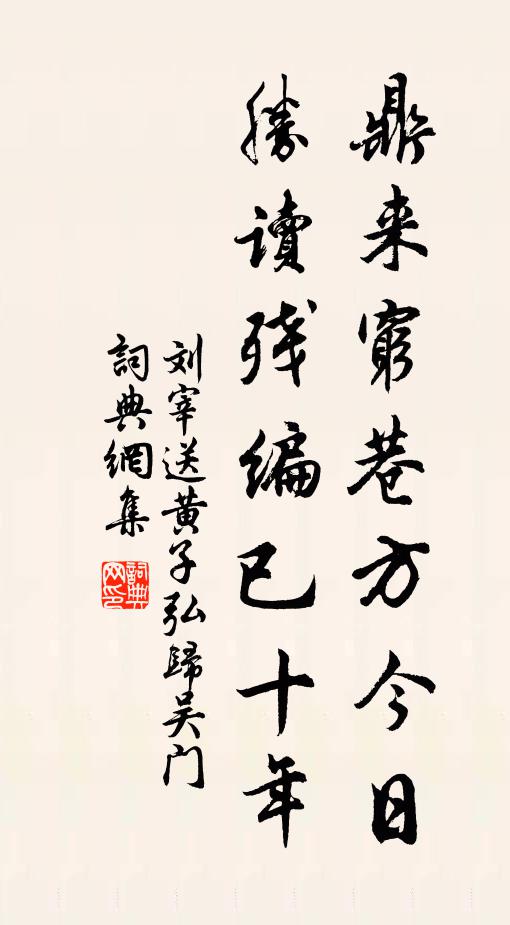 鼎来窮巷方今日
勝读残编已十年
刘宰送黄子弘歸吴门
詞典網集
詞典网印